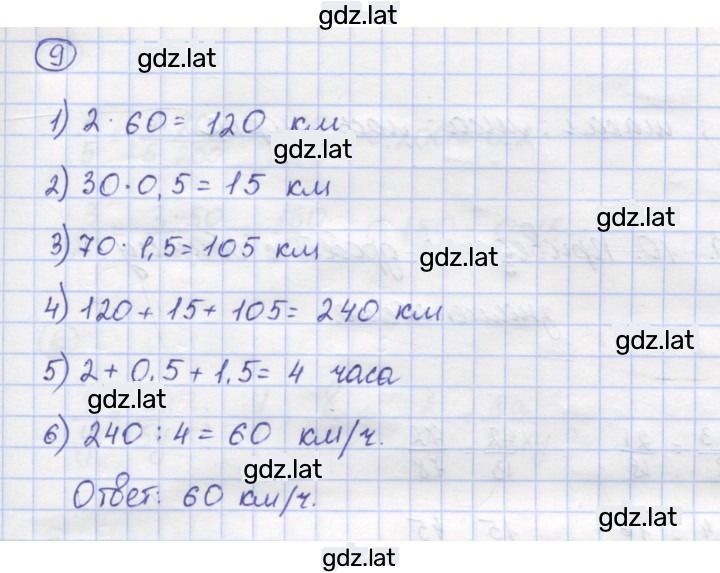 gdz.lat
9
gdz.lat
1) 2 · 60 = 120 км
gdz.lat
2) 30 · 0,5 = 15 км
gdz.lat
3) 70 · 1,5 = 105 км
gdz.lat
4) 120 + 15 + 105 = 240 км
gdz.lat
5) 2 + 0,5 + 1,5 = 4 часа
gdz.lat
6) 240 : 4 = 60 км/ч.
gdz.lat
Ответ: 60 км/ч.
gdz.lat
gdz.lat